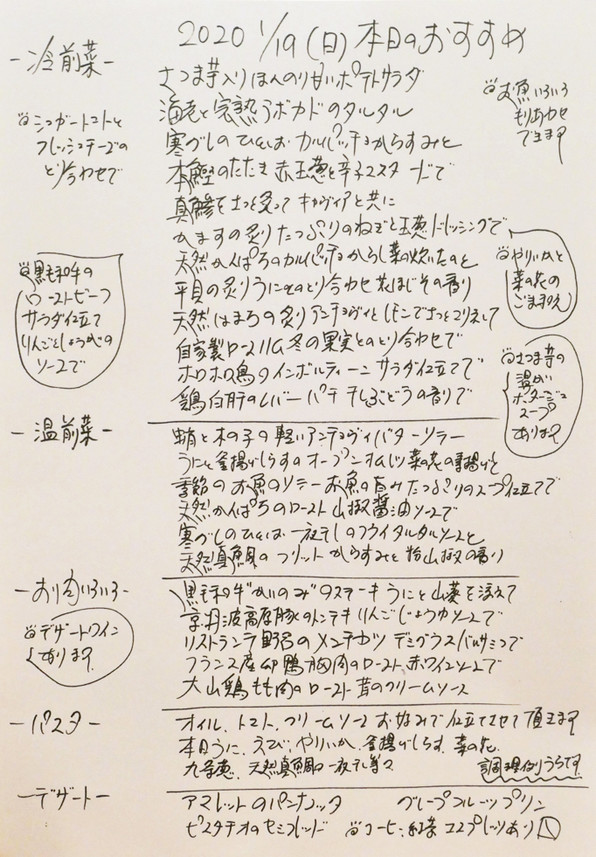 2020 1/19(日)本日のおすすめ
-冷前菜-
さつま芋入りほんのり甘いポテトサラダ
海老と完熟アボカドのタルタル
寒ブリのひといお カルパッチョ からすみと
本鰹のたたき 赤玉葱と辛子マスタードで
真鯵をさっと炙って キャヴィアと共に
かますの炙り たっぷりのねぎと玉葱ドレッシングで
天然かんぱちのカルパッチョ からし菜の炊いたのと
平貝の炙り うにとのとり合わせ 花ほじその香り
天然はまちの炙り アンチョヴィとレモンでさっとマリネして
自家製ロースハム 冬の果実とのとり合わせで
ホロホロ鳥のインボルティーニ サラダ仕立てで
鶏白肝のレバーパテ 干しぶどうの香りで
お魚いろいろ
もりあわせ
できます
シュガートマトと
フレッシュチーズの
とり合わせで
黒毛和牛の
ローストビーフ
サラダ仕立て
りんごとしょうがの
ソースで
やりいかと
菜の花の
ごま和え
さつま芋の
温かい
ポタージュ
スープ
あります
-温前菜-
蛸と木の子の軽いアンチョヴィバターソテー
うにと釜揚げしらすのオープンオムレツ 菜の花の素揚げと
季節のお魚のソテー お魚の旨みたっぷりのスープ仕立てで
天然かんぱちのロースト 山椒醤油ソースで
寒ブリのひといお 一夜干しのフライ タルタルソースと
天然真鯛のフリット からすみと粉山椒の香り
-お肉いろいろ-
黒毛和牛"かいのみ"のステーキ うにと山葵を添えて
京丹波高原豚のトンテキ りんごじょうがソースで
リストランテ野呂のメンチカツ デミグラスバルサミコで
フランス産 卵鴨胸肉のロースト、赤ワインソースで
大山鶏もも肉のロースト 茸のクリームソース
デザートワイン
あります
-パスタ-
オイル、トマト、クリームソース お好みで仕立てさせて頂きます
本日うに、えび、やりいか、釜揚げしらす、菜の花、
九条葱、天然真鯛の一夜干し等々
調理例うらです
-デザート-
アマレットのパンナコッタ グレープフルーツプリン
ピスタチオのセミフレッド コーヒー、紅茶、エスプレッソあり